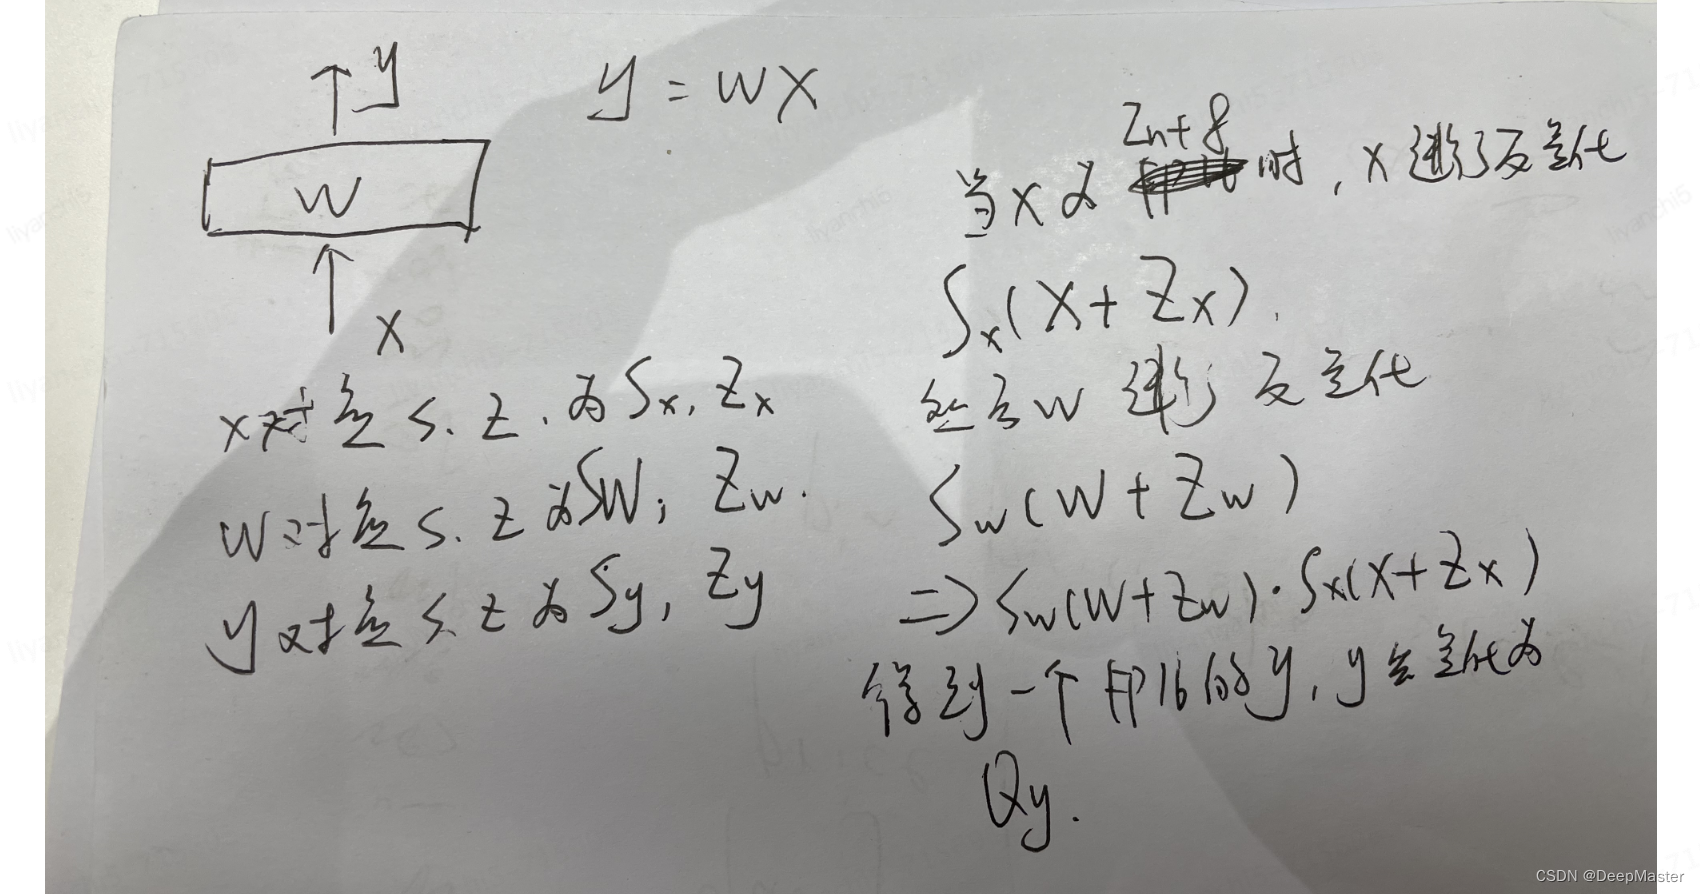 y
y = wx
W
x
x对应 s. z. 为 Sx, Zx
W对应 s. z 为 SW, Zw.
y对应 s. z 为 Sy, Zy
当 x 为 Int 8 时, x 进行反量化
Sx(X+Zx).
然后 W 进行反量化
Sw(W+Zw)
=> Sw(W+Zw)·Sx(X+Zx)
得到一个 FP16的y, y 量化为
Qy.
liyanchi5
CSDN @DeepMaster